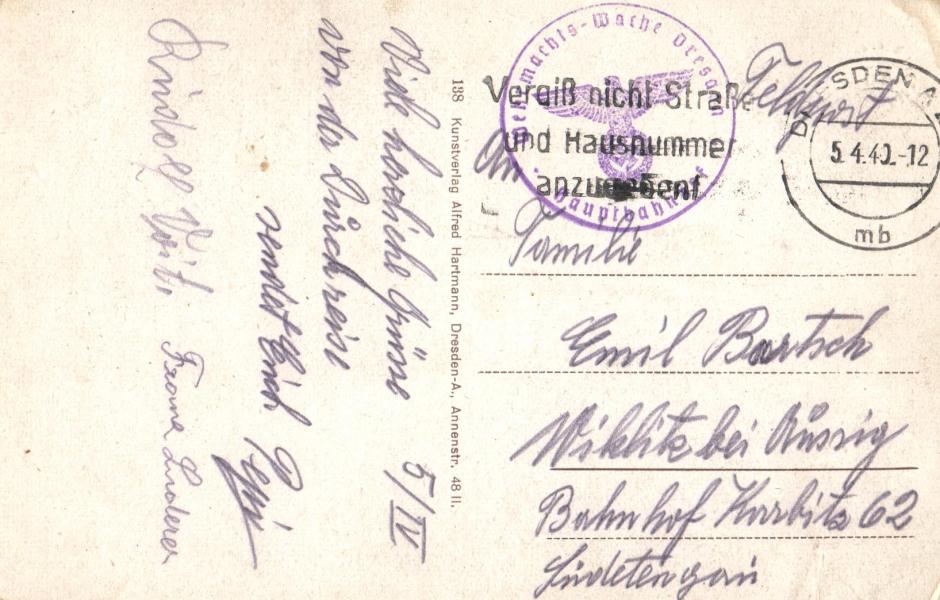 Viele herzliche Grüsse 5/IV
von der Durchreise
sendet Euch
Rudolf Voit.
138 Kunstverlag Alfred Hartmann, Dresden-A., Annenstr. 48 II.
Wehrmachts-Wache Dresden
Hauptbahnhof
Vergiß nicht Straße
und Hausnummer
anzugeben!
Feldpost
DRESDEN A
5.4.40.-12
mb
An
Familie
Emil Bartsch
Wiklitz bei Aussig
Bahnhof Karbitz 62
Sudetengau